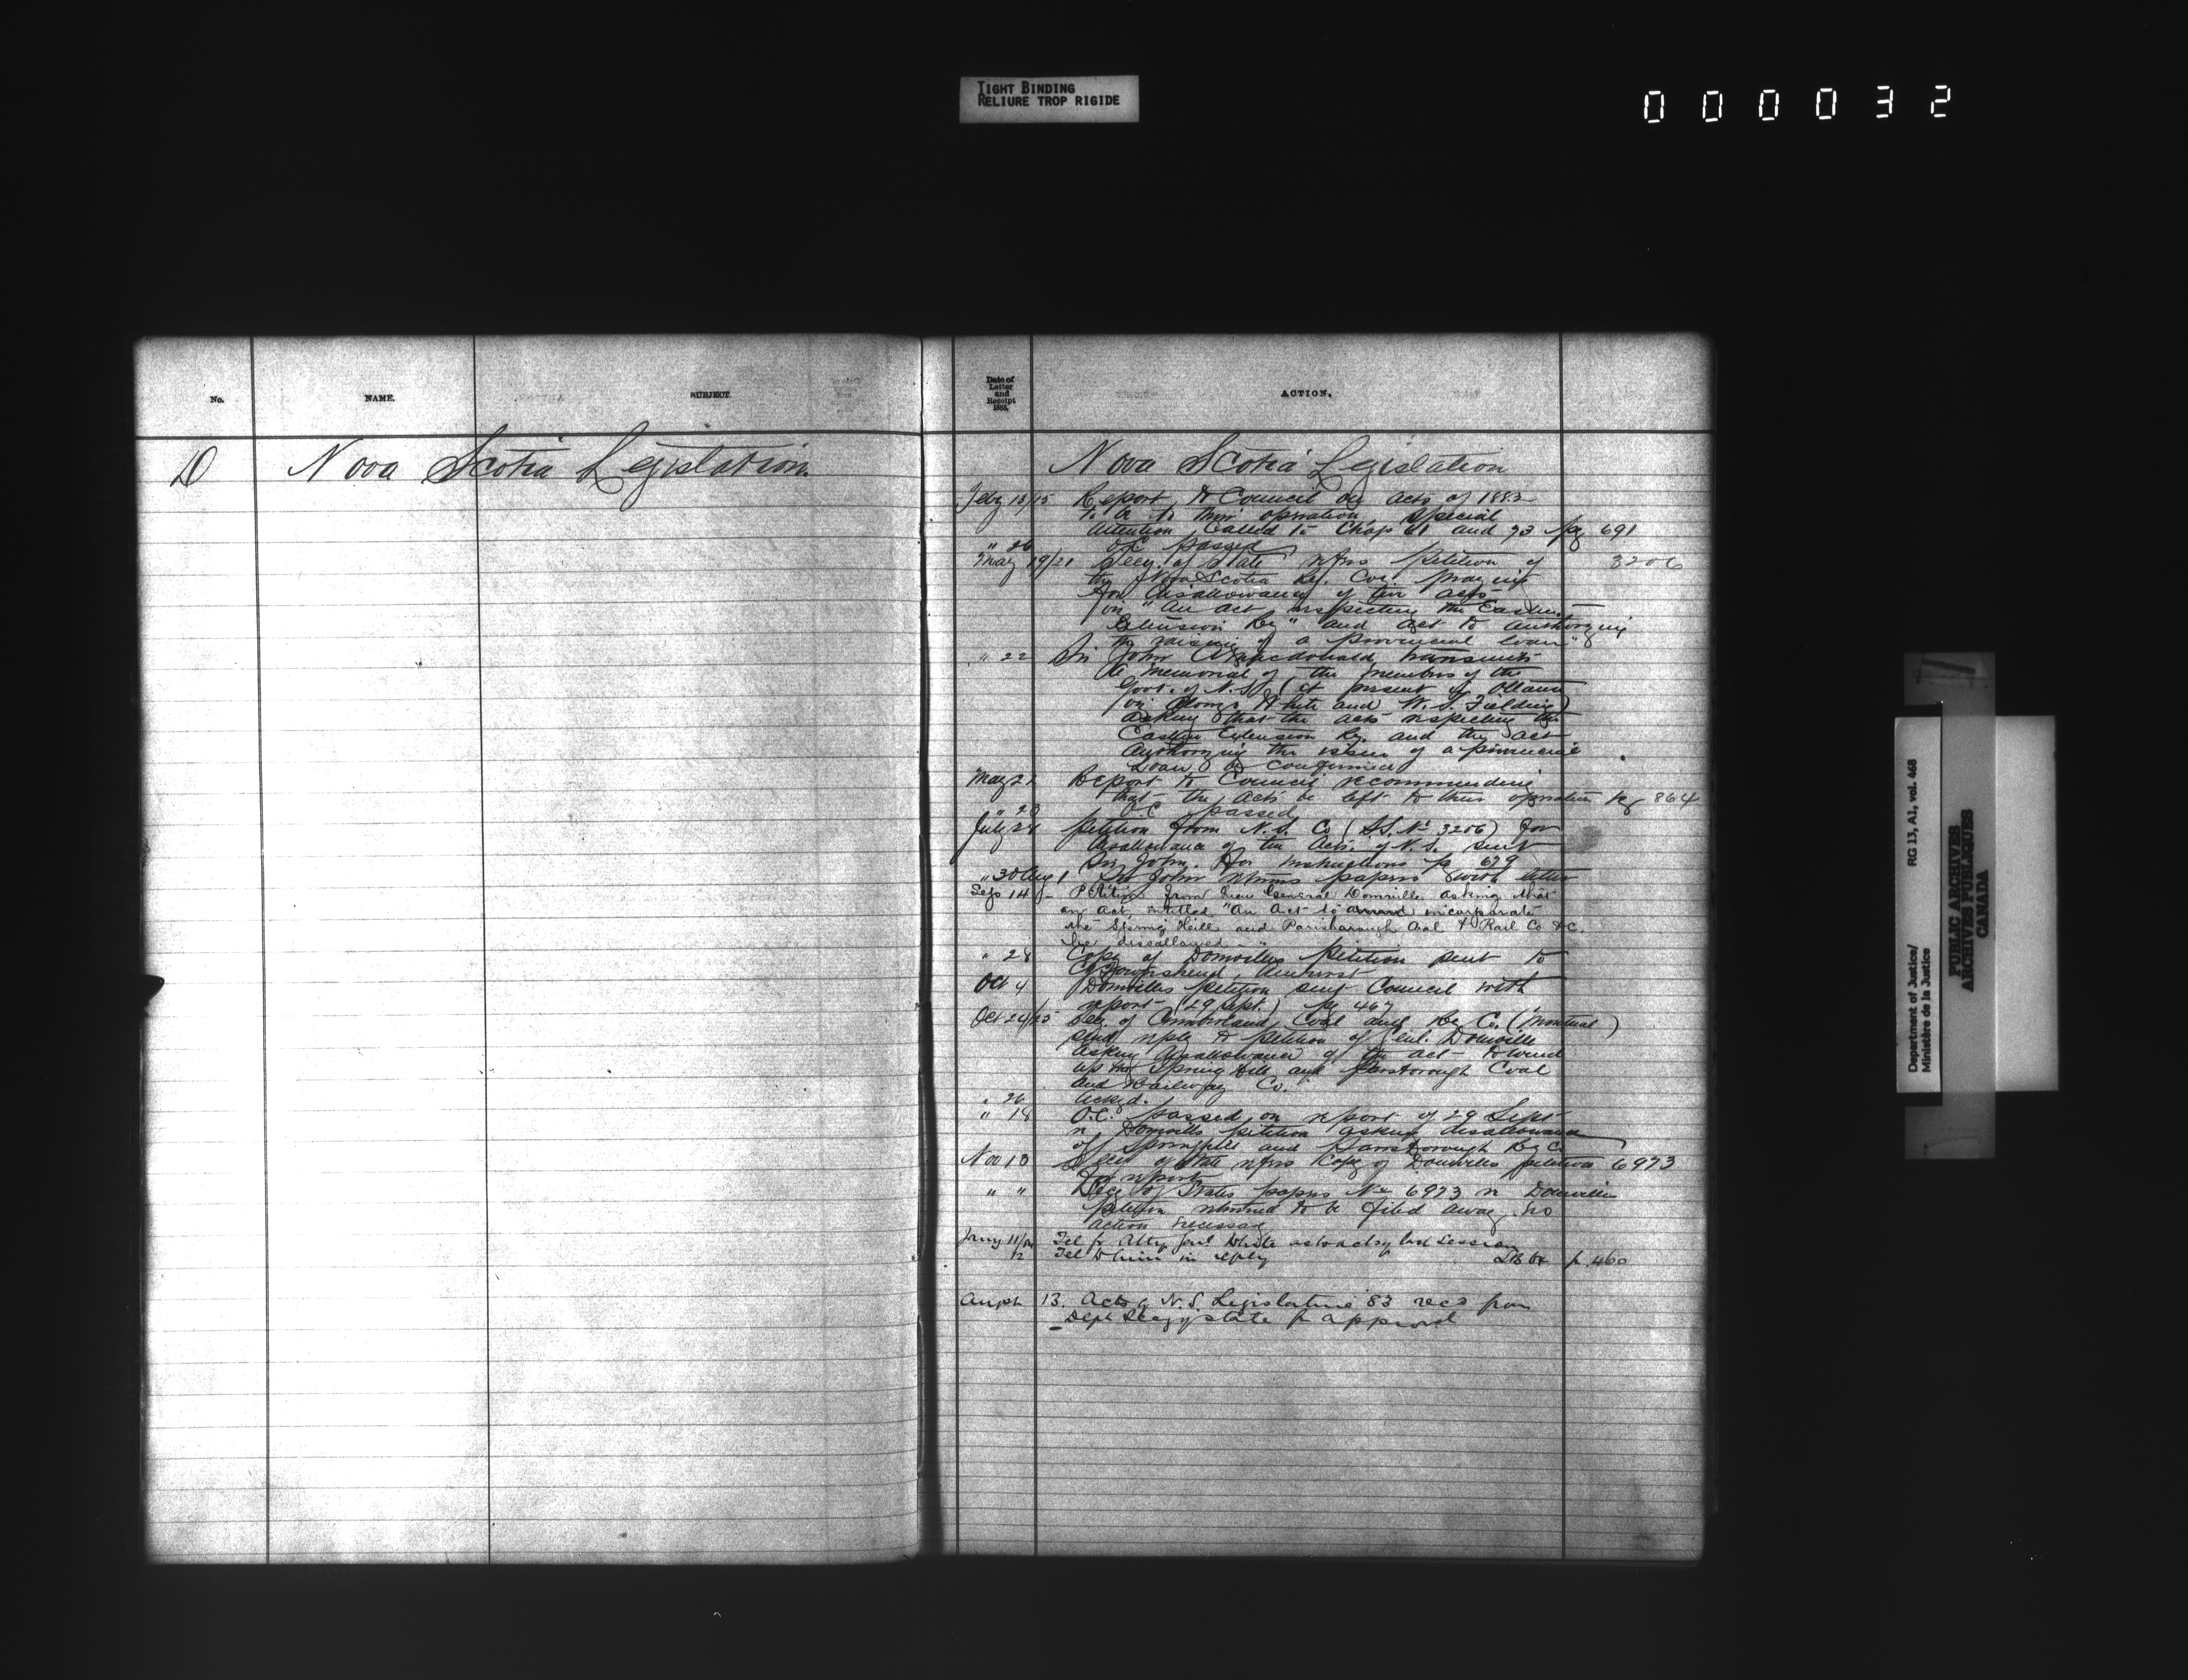 TIGHT BINDING
RELIURE TROP RIGIDE
000032
No.
NAME.
SUBJECT.
Date of
Letter
and
Receipt
1883.
ACTION.
D Nova Scotia Legislation
Nova Scotia Legislation
Feby 13/15 Report to Council on acts of 1882
to be to their operation, special
attention called to Chap 61 and 73 pg 691
" 26 O.C. passed
May 19/21 Secy. of State refers Petition of 3206
the Nova Scotia Ry. Coy. praying
for disallowance of two acts
viz "An act respecting the Eastern
Extension Ry" and act to authorizing
the raising of a provincial loan"
" 22 Sir John A Macdonald transmits
a memorial of the members of the
Govt. of N.S. (at present in Ottawa
viz Alonzo White and W. S. Fielding)
asking that the acts respecting the
Eastern Extension Ry. and the act
authorizing the issue of a provincial
Loan be confirmed
May 21 Report to Council recommending
that the acts be left to their operation pg 864
" 23 O.C. passed
July 28 Petition from N.S. Co (S.S. No. 3206) for
disallowance of two Acts of N.S. sent
Sir John. for instructions pg 629
" 30 Aug 1 Sir John returns papers with letter
Sep 14 Petition from General Domville asking that
an Act, entitled "An Act to amend incorporate
the Spring Hill and Parrsborough Coal & Rail Co &c.
be disallowed
" 28 Copy of Domvilles Petition sent to
Townshend, Amherst
Oct 4 Domvilles petition sent Council with
report (29 Sept.) pg 467
Oct 24/25 Sec. of Cumberland Coal and Ry Co. (Montreal)
send reply to petition of Genl. Domville
asking disallowance of the act to wind
up the Spring Hill and Parrsborough Coal
and Railway Co.
" 26 acked.
" 18 O.C. passed on report of 29 Sept
re Domvilles petition asking disallowance
of Springhill and Parrsborough Ry Co.
Nov 10 Secy of State refers Copy of Domvilles petition 6973
for report
" " Secy of States papers No 6973 re Domville
petition returned to be filed away. No
action necessary
Jany 11/ Tel fr Atty Genl White as to acts last session
12 Tel to him in reply p. 460
13. Acts of N.S. Legislature 83 recd from
Dept Secy of state for approval
Department of Justice/ RG 13, A1, vol. 468
Ministère de la Justice
PUBLIC ARCHIVES
ARCHIVES PUBLIQUES
CANADA